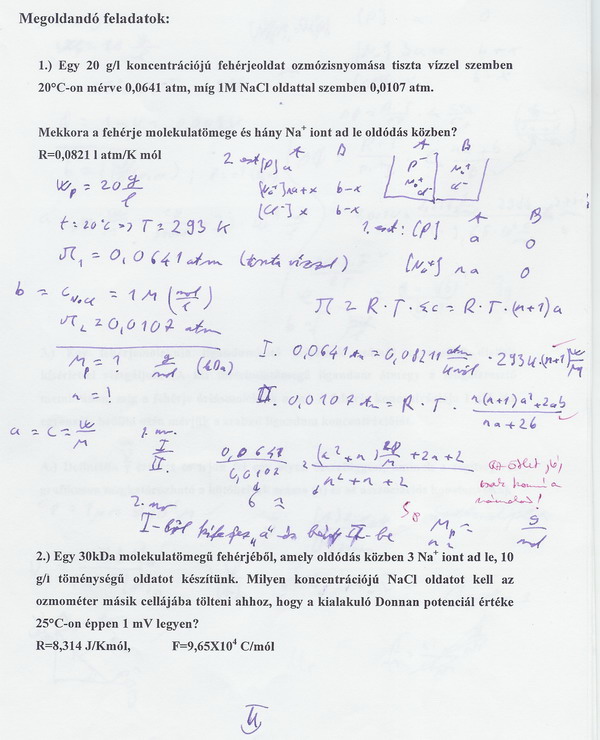 Megoldandó feladatok:
1.) Egy 20 g/l koncentrációjú fehérjeoldat ozmózisnyomása tiszta vízzel szemben
20°C-on mérve 0,0641 atm, míg 1M NaCl oldattal szemben 0,0107 atm.
Mekkora a fehérje molekulatömege és hány Na⁺ iont ad le oldódás közben?
R=0,0821 l atm/K mól
2. eset A B
[P] a
[Na⁺] na+x b-x
[Cl⁻] x b-x
A B
P⁻ Na⁺
Na⁺ Cl⁻
Cl⁻
w_P = 20 g/l
t = 20°C => T = 293 K
1. eset: A B
[P] a 0
[Na⁺] na 0
π₁ = 0,0641 atm (tiszta vízzel)
b = c_NaCl = 1M (mol/l)
π = R·T·Σc = R·T·(n+1)a
π₂ = 0,0107 atm
M_P = ? g/mol (kDa)
I. 0,0641 atm = 0,0821 l atm/K mól · 293K · (n+1) w/M
n = !
II. 0,0107 atm = R·T· n(n+1)a²+2ab / na+2b
a = c = w/M
1. mo.
I / II. 0,0641 / 0,0107 = (n²+n) 20/M + 2n+2 / n²+n+2
6
2. mo
I-ből kifejez „a" és II-be
M_P = g/mol
n =
az ötlet jó,
számolás!
2.) Egy 30kDa molekulatömegű fehérjéből, amely oldódás közben 3 Na⁺ iont ad le, 10
g/l töménységű oldatot készítünk. Milyen koncentrációjú NaCl oldatot kell az
ozmométer másik cellájába tölteni ahhoz, hogy a kialakuló Donnan potenciál értéke
25°C-on éppen 1 mV legyen?
R=8,314 J/Kmól, F=9,65X10⁴ C/mól